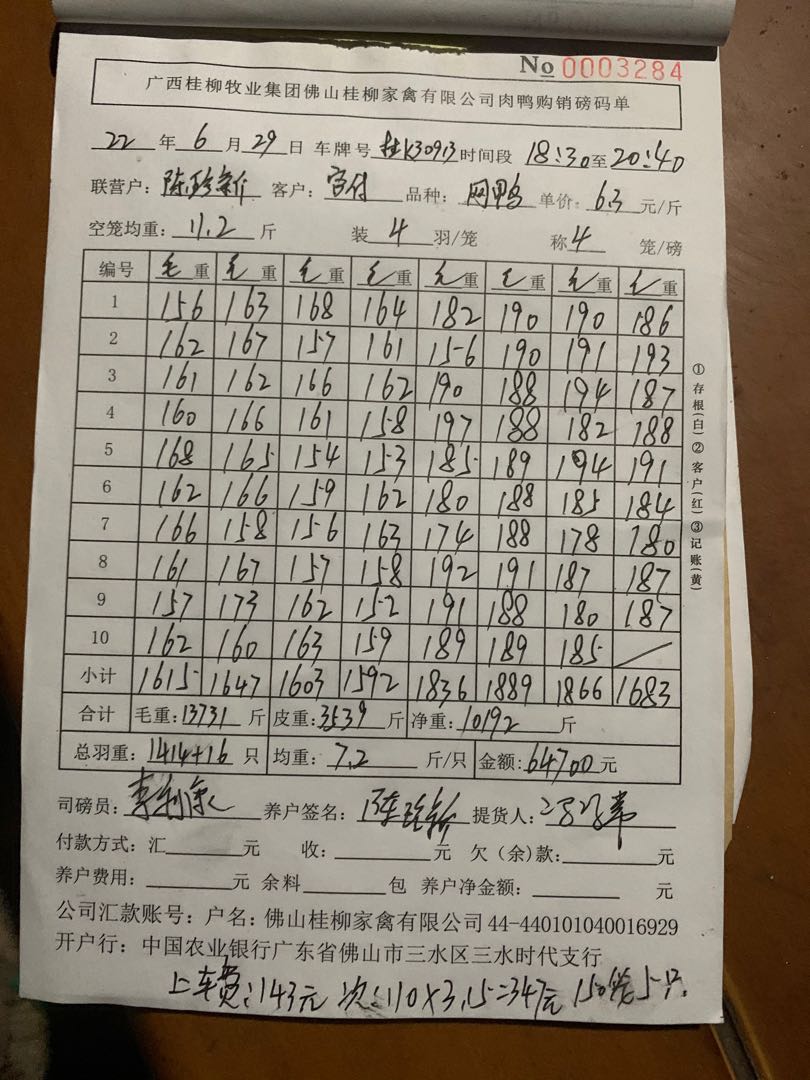 No 0003284
广西桂柳牧业集团佛山桂柳家禽有限公司肉鸭购销磅码单
22 年 6 月 29 日 车牌号 桂K30913 时间段 18:30 至 20:40
联营户: 客户: 品种: 单价: 6.3 元/斤
空笼均重: 11.2 斤 装 4 羽/笼 称 4 笼/磅
编号 毛重 毛重 毛重 毛重 毛重 毛重 毛重 毛重
1 156 163 168 164 182 190 190 186
2 162 167 157 161 156 190 191 193
3 161 162 166 162 190 188 194 187
4 160 166 161 158 197 188 182 188
5 168 165 154 153 185 189 194 191
6 162 166 159 162 180 188 185 184
7 166 158 156 163 174 188 178 180
8 161 167 157 158 192 191 187 187
9 157 173 162 152 191 188 180 187
10 162 160 163 159 189 189 185 /
小计 1615 1647 1603 1592 1836 1889 1866 1683
合计 毛重: 13731 斤 皮重: 3539 斤 净重: 10192 斤
总羽重: 1414+16 只 均重: 7.2 斤/只 金额: 64700 元
司磅员: 养户签名: 提货人:
付款方式: 汇 元 收: 元 欠(余)款: 元
养户费用: 元 余料 包 养户净金额: 元
公司汇款账号: 户名: 佛山桂柳家禽有限公司 44-440101040016929
开户行: 中国农业银行广东省佛山市三水区三水时代支行
上车费: 143元 次: 110×3.15=347元 150 5只.
①存根(白)②客户(红)③记账(黄)